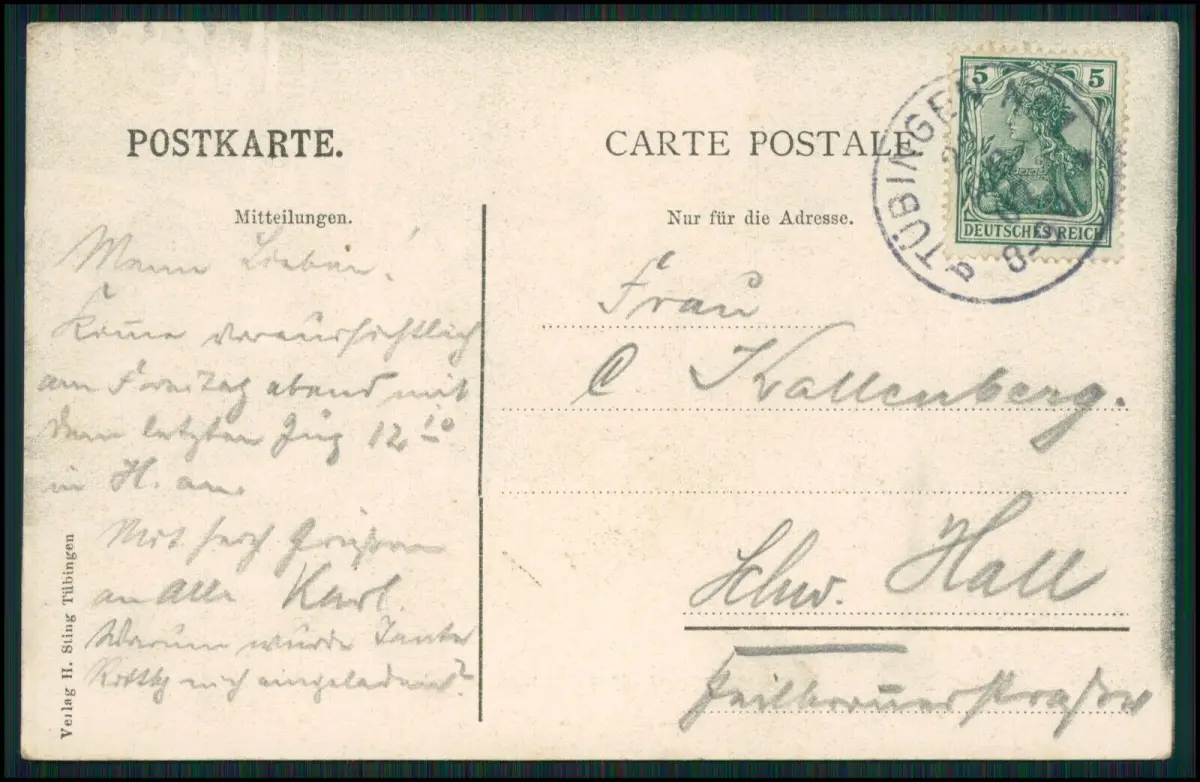 POSTKARTE.
Mitteilungen.
Meine Lieben!
Komme voraussichtlich
am Freitag abend mit
dem letzten Zug 12 10
in H. an.
Mit herzl Grüßen
an alle Karl.
Warum wurde Tante
eingeladen?
Verlag H. Sting Tübingen
CARTE POSTALE
Nur für die Adresse.
TÜBINGEN
8-9
5 5
DEUTSCHES REICH
Frau
C Kallenberg.
Schw. Hall
Heilbronnerstraße